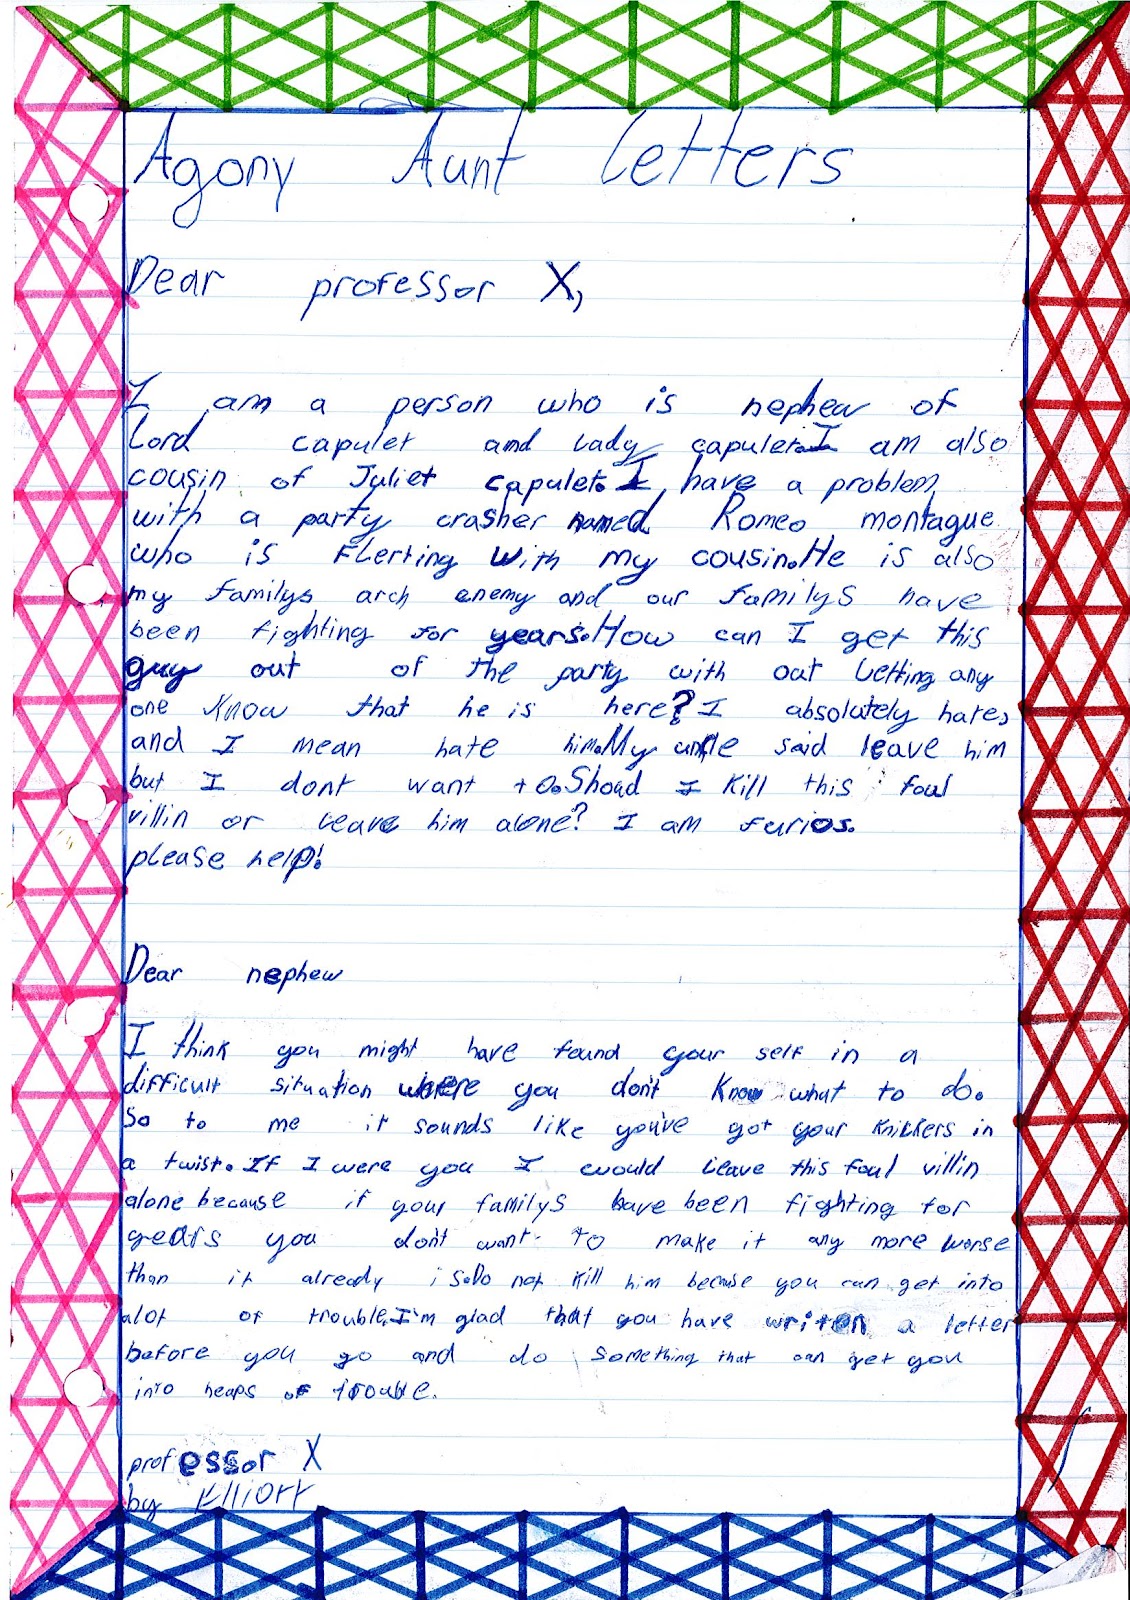 Agony Aunt Letters
Dear professor X,
I am a person who is nephew of
Lord capulet and Lady capulet.I am also
cousin of Juliet capulet.I have a problem
with a party crasher named Romeo montague
who is Flerting with my cousin.He is also
my familys arch enemy and our familys have
been fighting for years.How can I get this
guy out of the party with out Letting any
one know that he is here? I absolutely hate,
and I mean hate him.My uncle said leave him
but I dont want to.Shoud I kill this foul
villin or leave him alone? I am furios.
please help!
Dear nephew
I think you might have found your self in a
difficult situation where you don't know what to do.
So to me it sounds like you've got your knickers in
a twist. If I were you I would leave this foul villin
alone because if your familys have been fighting for
years you don't want to make it any more worse
than it already is.Do not kill him because you can get into
alot of trouble.I'm glad that you have writen a letter
before you go and do something that can get you
into heaps of trouble.
professor X
by Elliott